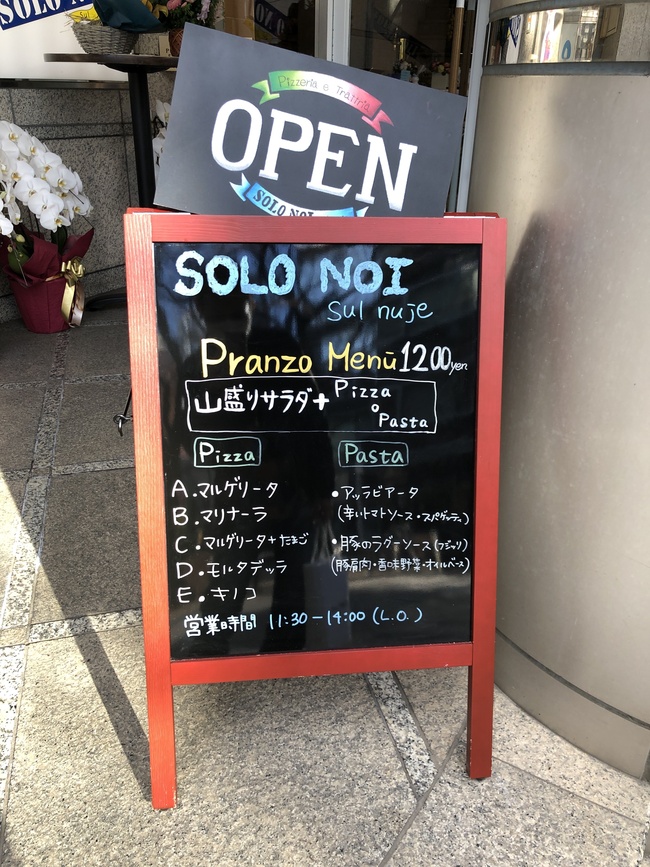 SOLO N
Pizzeria e Trattria
OPEN
SOLO NOI
SOLO NOI
Sul nuje
Pranzo Menū 1200yen
山盛りサラダ+ Pizza
o
Pasta
Pizza
A.マルゲリータ
B.マリナーラ
C.マルゲリータ+たまご
D.モルタデッラ
E.キノコ
Pasta
•アッラビアータ
(辛いトマトソース・スパゲッティ)
•豚のラグーソース(フジッリ)
(豚肩肉・香味野菜・オイルベース)
営業時間 11:30-14:00 (L.O.)